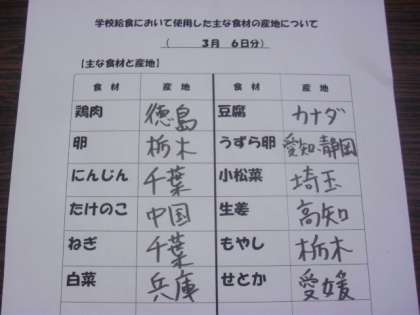 学校給食において使用した主な食材の産地について
( 3月 6日分)
【主な食材と産地】
食材 産地 食材 産地
鶏肉 徳島 豆腐 カナダ
卵 栃木 うずら卵 愛知・静岡
にんじん 千葉 小松菜 埼玉
たけのこ 中国 生姜 高知
ねぎ 千葉 もやし 栃木
白菜 兵庫 せとか 愛媛